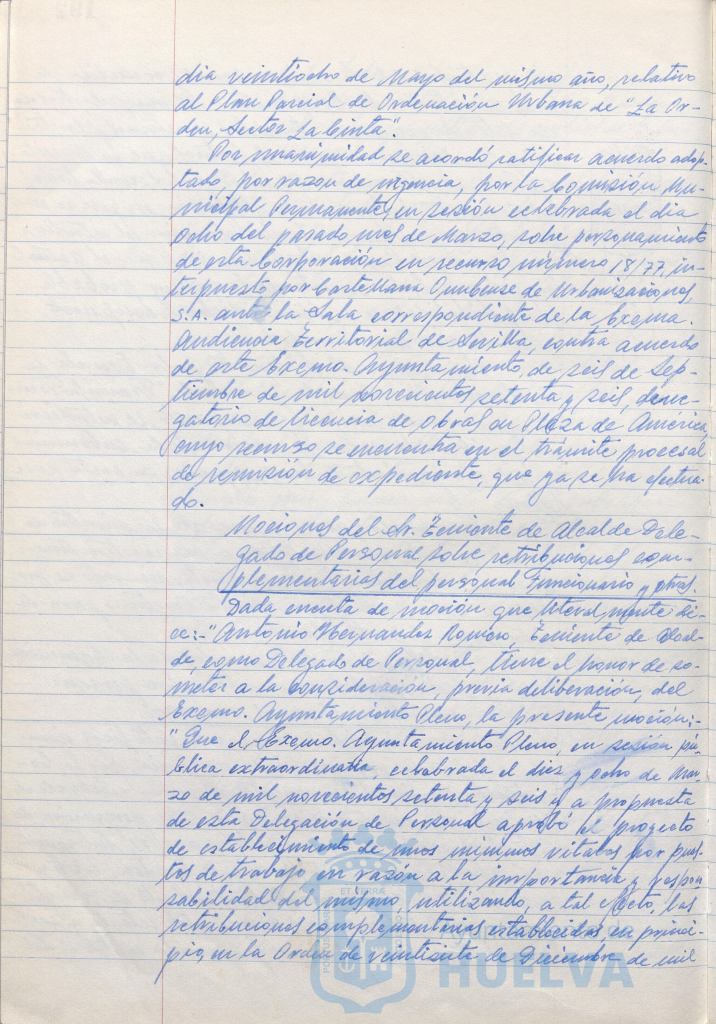 dia veintiocho de Mayo del mismo año, relativo
al Plan Parcial de Ordenación Urbana de "La Or-
den, Sector La Cinta".
Por unanimidad se acordó ratificar acuerdo adop-
tado, por razon de urgencia, por la Comisión Mu-
nicipal Permanente, en sesión celebrada el dia
ocho del pasado mes de Marzo, sobre personamiento
de esta Corporación en recurso número 18/77, in-
terpuesto por Castellana Onubense de Urbanizaciones,
S.A. ante la Sala correspondiente de la Excma.
Audiencia Territorial de Sevilla, contra acuerdo
de este Excmo. Ayuntamiento, de seis de Sep-
tiembre de mil novecientos setenta y seis, dene-
gatorio de licencia de obras en Plaza de América,
cuyo recurso se encuentra en el trámite procesal
de remisión de expediente, que ya se ha efectua-
do.
Mociones del Sr. Teniente de Alcalde Dele-
gado de Personal sobre retribuciones com-
plementarias del personal Funcionario y otros.
Dada cuenta de moción que literalmente di-
ce:-"Antonio Hernandez Romero, Teniente de Alcal-
de, como Delegado de Personal, tiene el honor de so-
meter a la consideración, previa deliberación, del
Excmo. Ayuntamiento Pleno, la presente moción:-
"Que el Excmo. Ayuntamiento Pleno, en sesión pú-
blica extraordinaria, celebrada el diez y ocho de Mar-
zo de mil novecientos setenta y seis y a propuesta
de esta Delegación de Personal aprobó el proyecto
de establecimiento de unos mínimos vitales por pues-
tos de trabajo en razón a la importancia y respon-
sabilidad del mismo, utilizando, a tal efecto, las
retribuciones complementarias establecidas en princi-
pio, en la Orden de veintisiete de Diciembre de mil
HUELVA